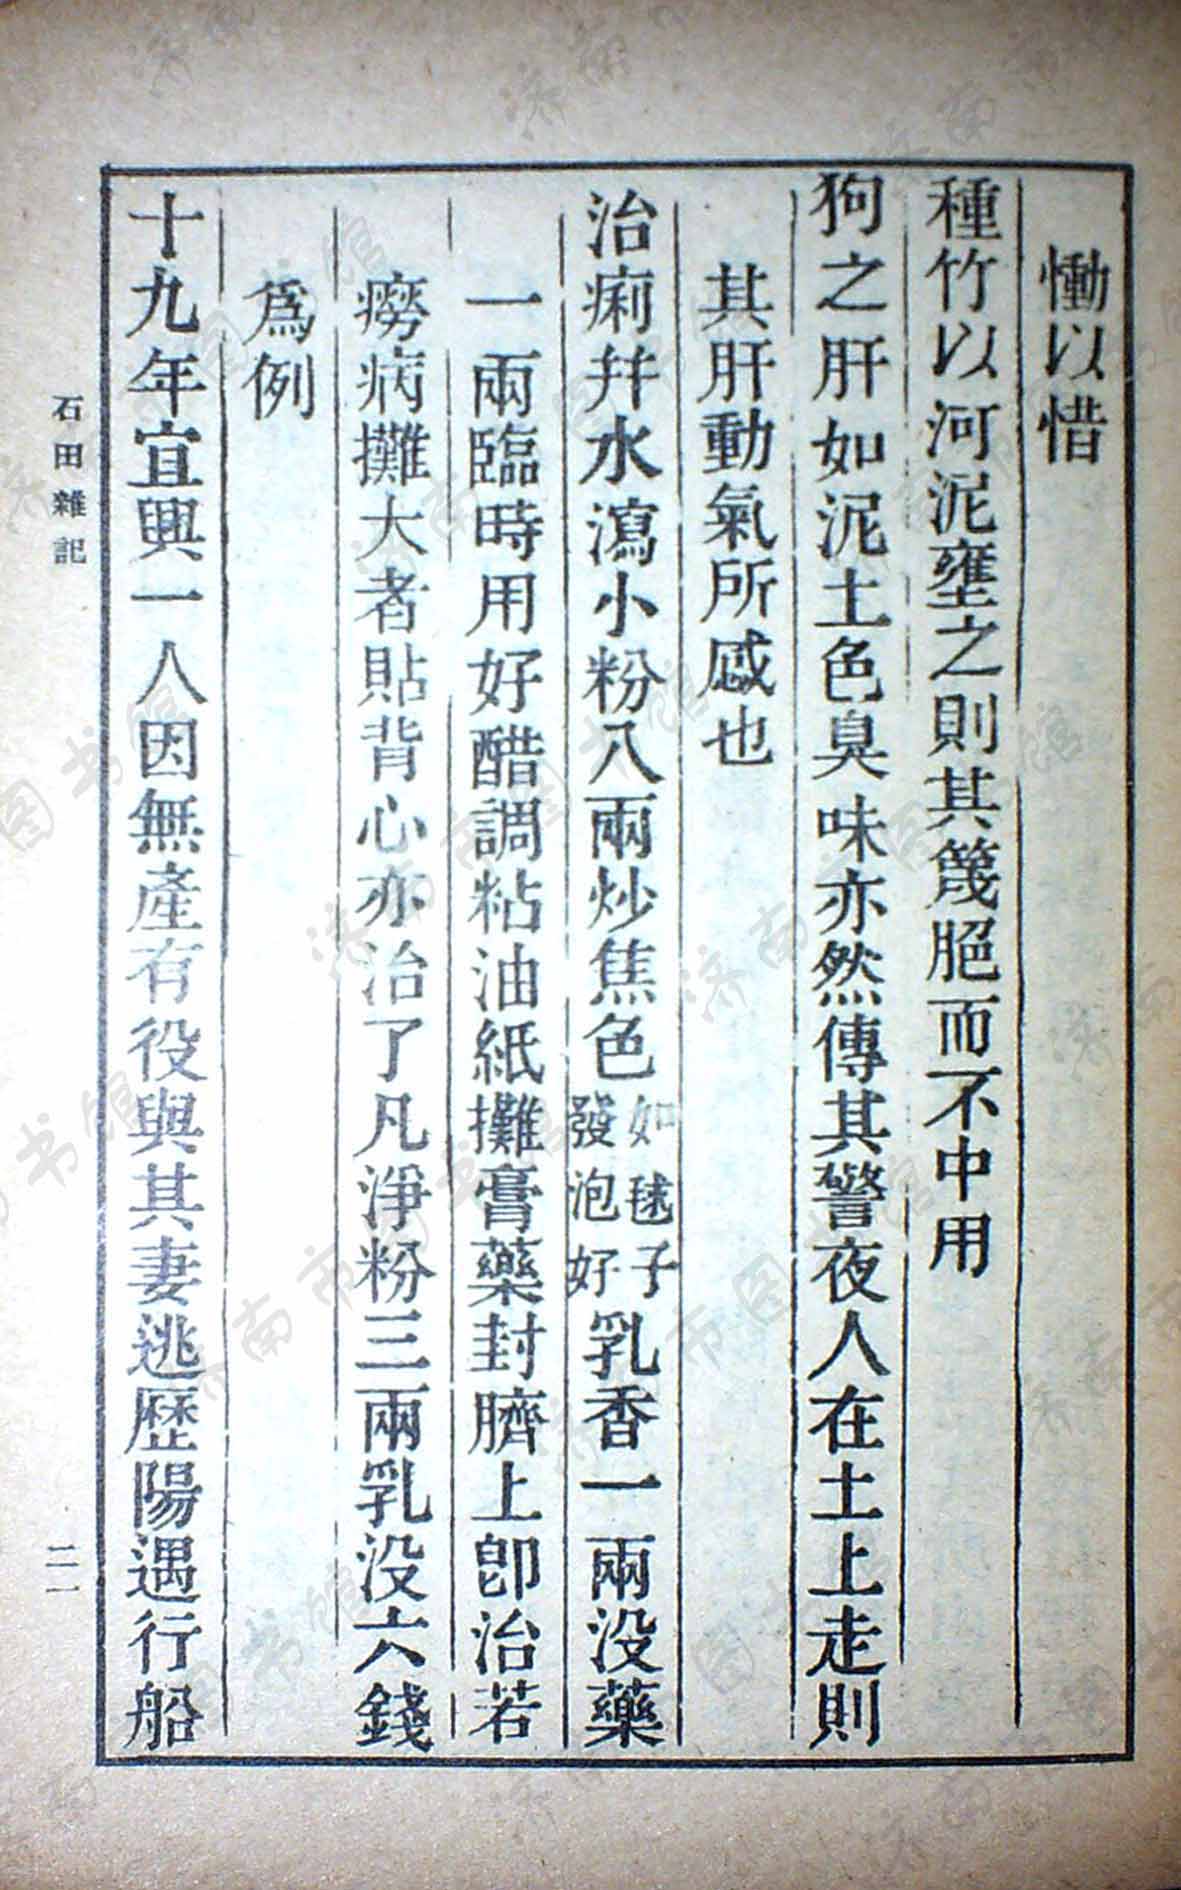 慟以惜
種竹以河泥壅之則其篾脆而不中用
狗之肝如泥土色臭味亦然傳其警夜人在土上走則
其肝動氣所感也
治痢并水瀉小粉八兩炒焦色如毬子發泡好乳香一兩没藥
一兩臨時用好醋調粘油紙攤膏藥封臍上卽治若
癆病攤大者貼背心亦治了凡淨粉三兩乳没六錢
爲例
十九年宜興一人因無產有役與其妻逃歷陽遇行船
石田雜記
二一
济南市图书馆